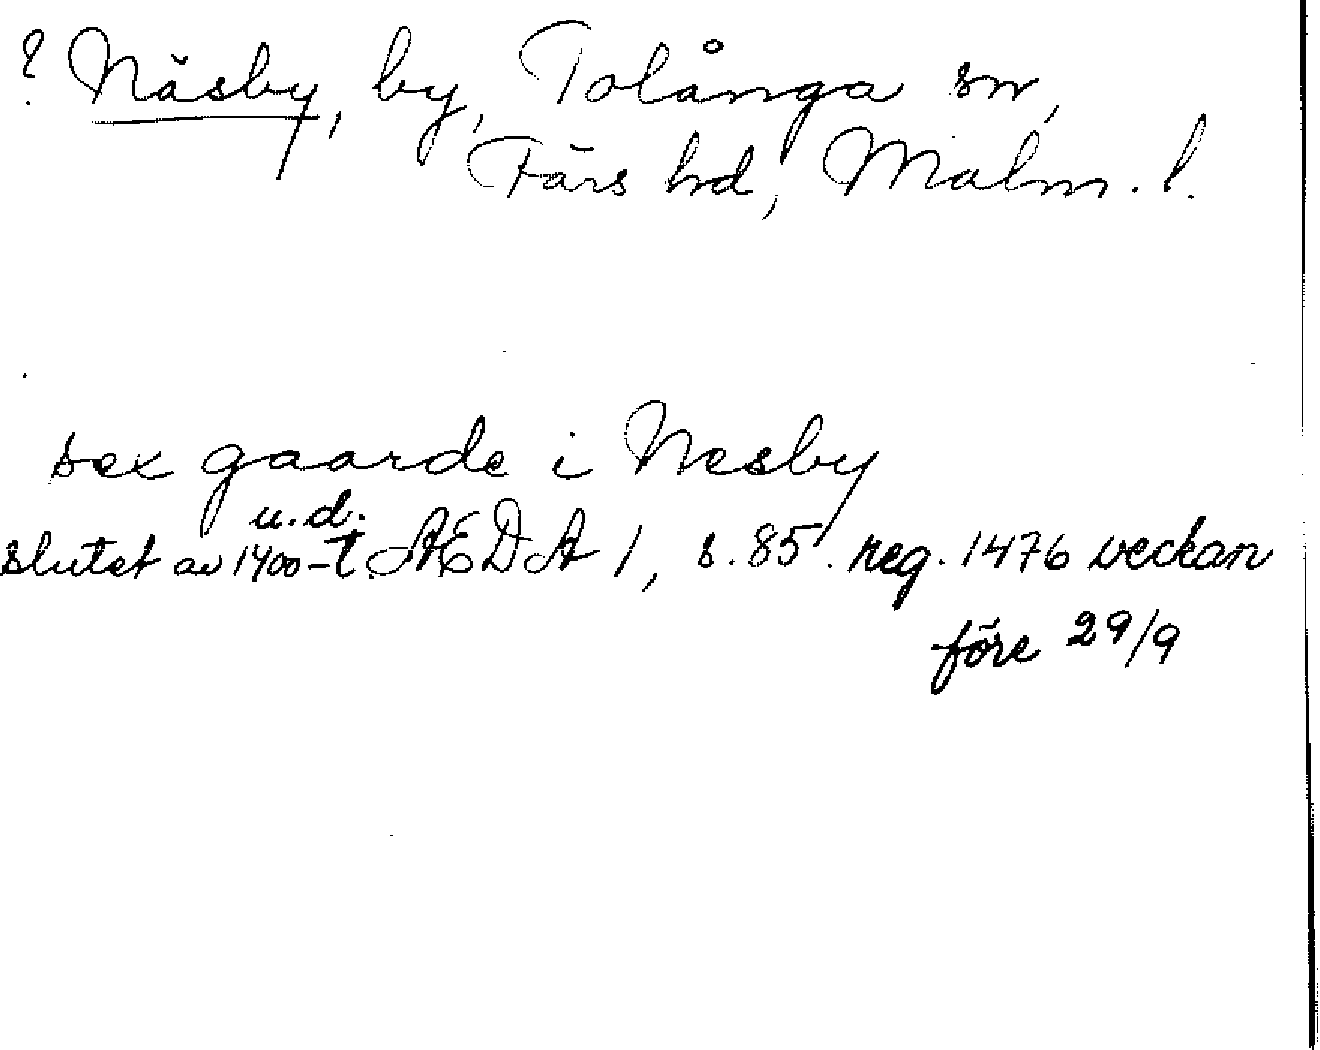 ? Näsby, by, Tolånga sn,
Färs hd, Malm. l.
sex gaarde i Nesby
u.d.
slutet av 1400-t. ÆDA 1, s. 85. reg. 1476 veckan
före 29/9